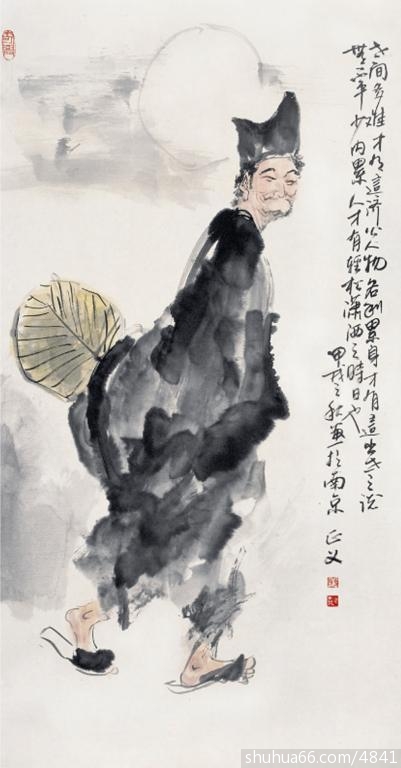 世间多难才有這济公人物名利累身才有這出世之说
少内累人才有轻松潇洒之時日也
甲戌之秋画于南京 正义
shuhua66.com/4841